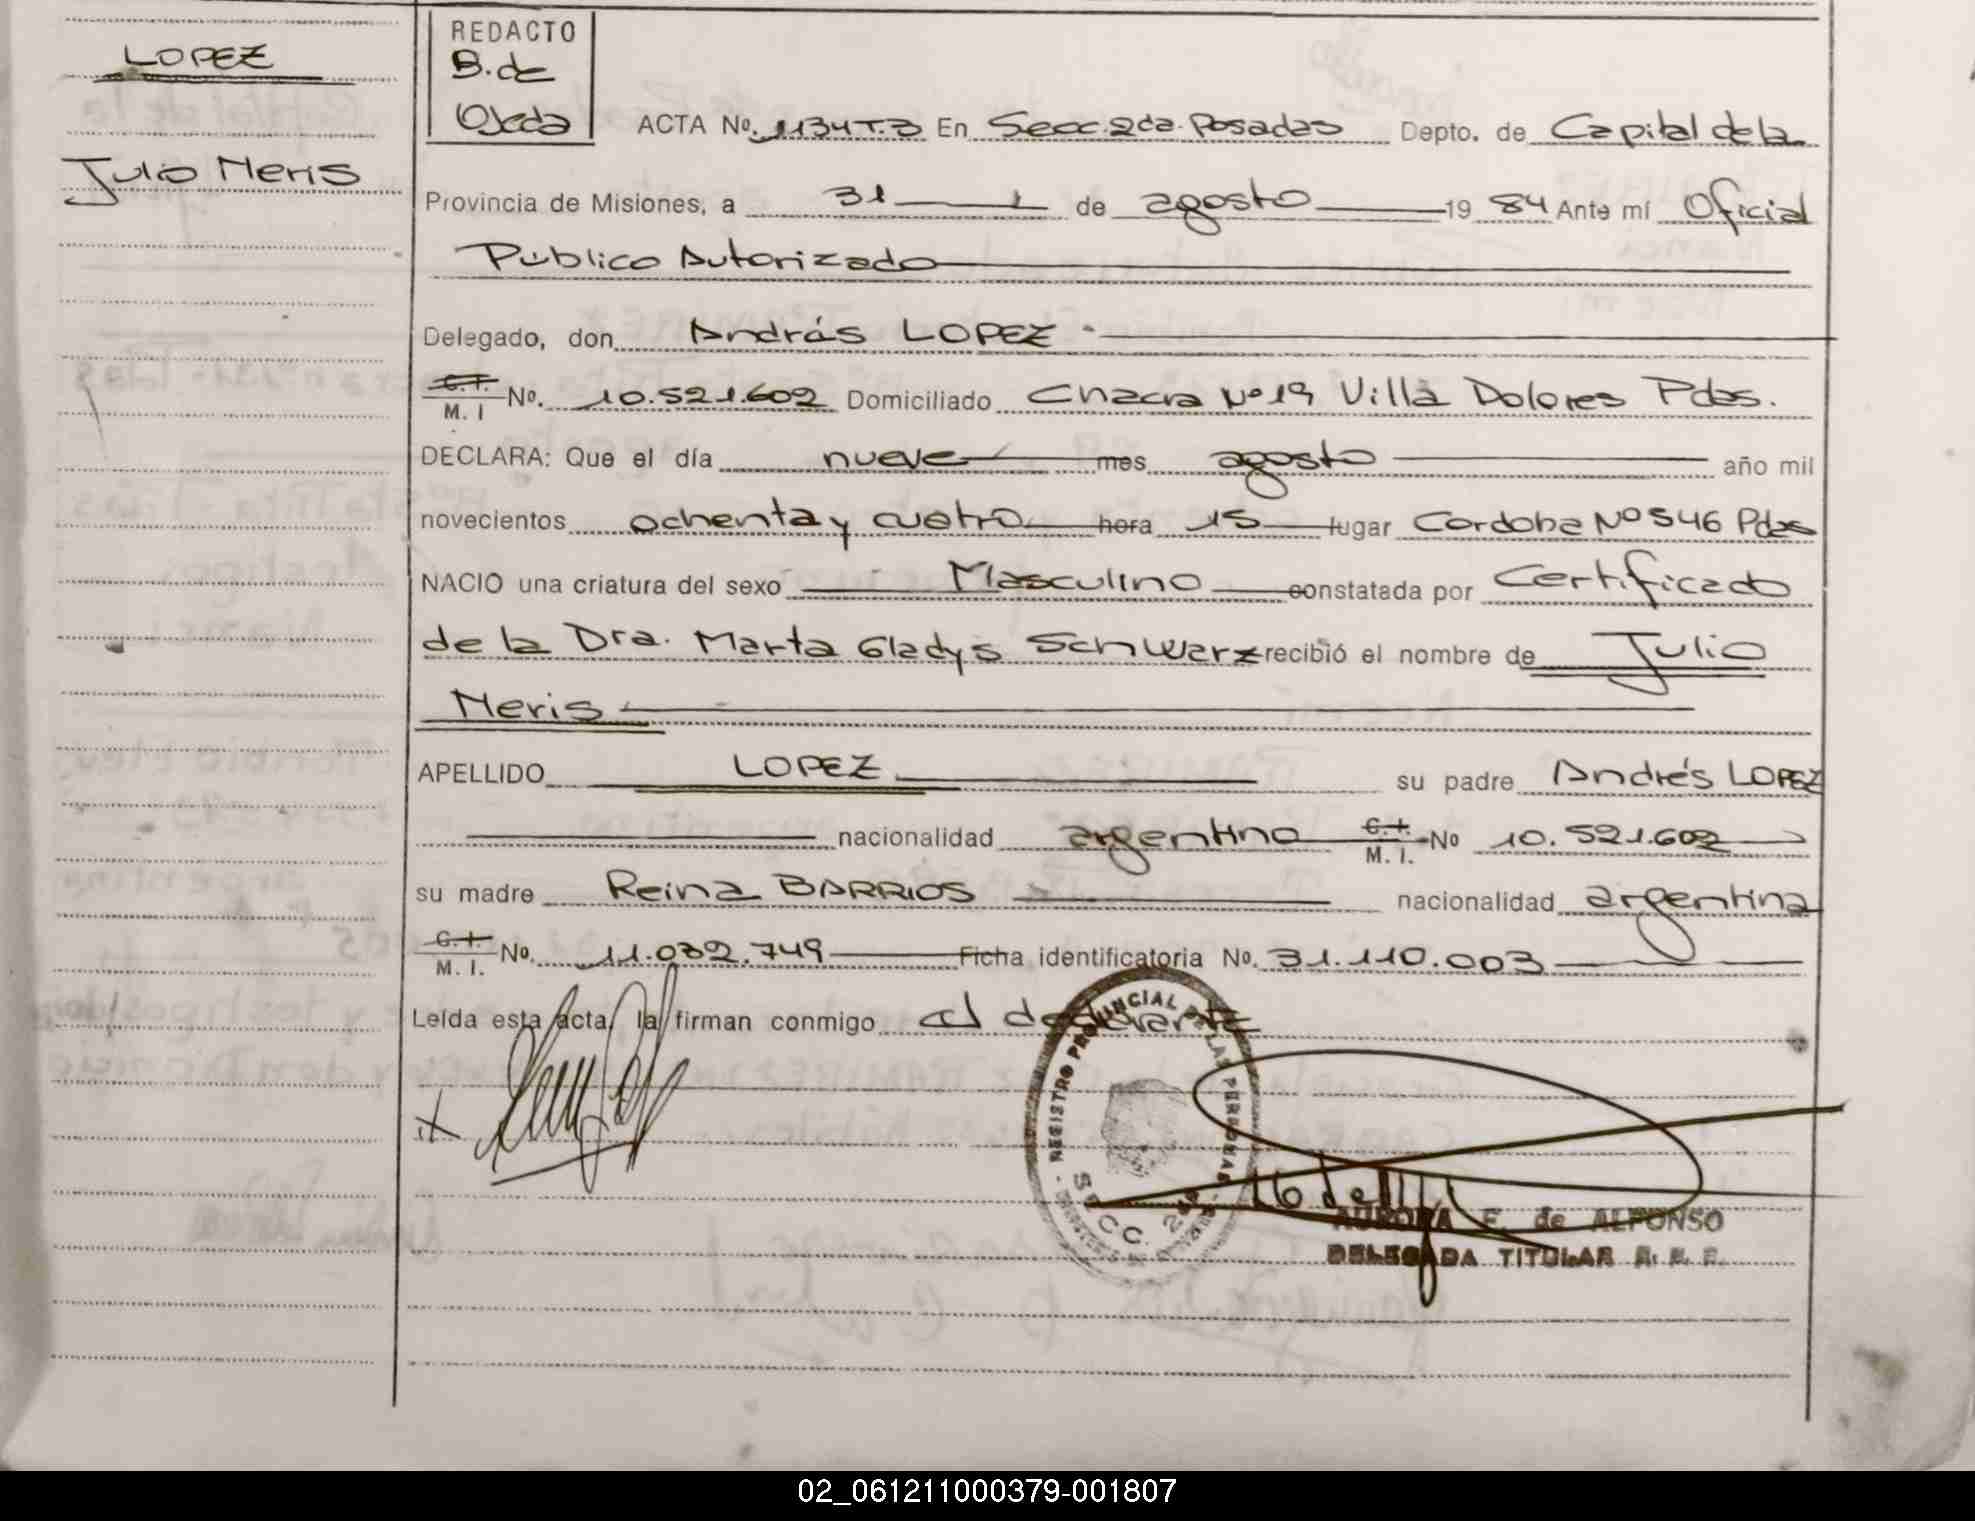 LOPEZ
Julio Neris
REDACTO
B. de
Ojeda
ACTA No. 1134 T.3 En Secc. 2da. Posadas Depto. de Capital de la
Provincia de Misiones, a 31 de agosto 1984 Ante mí Oficial
Público Autorizado
Delegado, don Andrés LOPEZ
C.I. M. I No. 10.521.602 Domiciliado Chacra Nº 19 Villa Dolores Pdas.
DECLARA: Que el día nueve mes agosto año mil
novecientos ochenta y cuatro hora 15 lugar Cordoba Nº 546 Pdas
NACIO una criatura del sexo Masculino constatada por Certificado
de la Dra. Marta Gladys Schwarz recibió el nombre de Julio
Neris
APELLIDO LOPEZ su padre Andrés LOPEZ
nacionalidad argentino C.I. M. I. No 10.521.602
su madre Reina BARRIOS nacionalidad argentina
C.I. M. I. No. 11.032.749 Ficha identificatoria No. 31.110.003
Leída esta acta, la firman conmigo el declarante
REGISTRO PROVINCIAL DE LAS PERSONAS
SECC. 2da
AURORA F. de ALFONSO
DELEGADA TITULAR
02_061211000379-001807